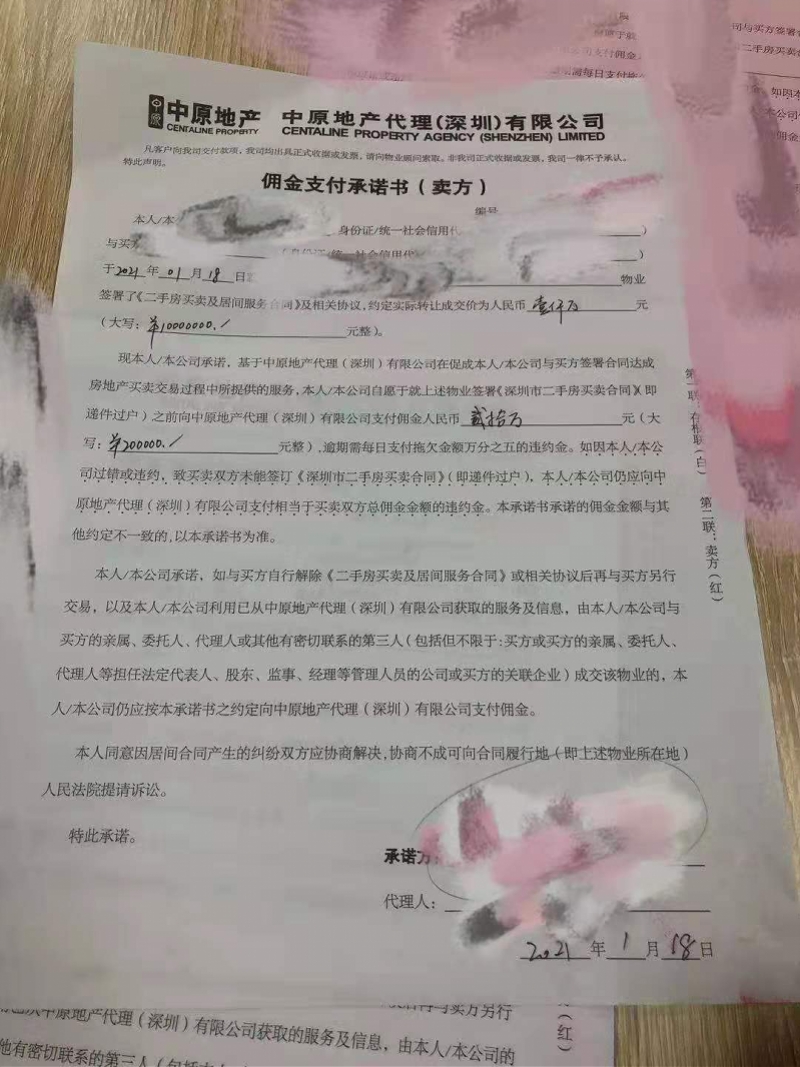 中原
中原地产 中原地产代理(深圳)有限公司
CENTALINE PROPERTY CENTALINE PROPERTY AGENCY (SHENZHEN) LIMITED
凡客户向我司交付款项，我司均出具正式收据或发票，请向物业顾问索取。非我司正式收据或发票，我司一律不予承认。
特此声明。
佣金支付承诺书（卖方）
编号
本人/本 身份证/统一社会信用代 ）
与买方 （身份证/统一社会信用代 ）
于2021年01月18日 物业
签署了《二手房买卖及居间服务合同》及相关协议，约定实际转让成交价为人民币 壹仟万 元
（大写：¥10000000./ 元整）。
现本人/本公司承诺，基于中原地产代理（深圳）有限公司在促成本人/本公司与买方签署合同达成
房地产买卖交易过程中所提供的服务，本人/本公司自愿于就上述物业签署《深圳市二手房买卖合同》（即
递件过户）之前向中原地产代理（深圳）有限公司支付佣金人民币 贰拾万 元（大
写：¥200000./ 元整），逾期需每日支付拖欠金额万分之五的违约金。如因本人/本公
司过错或违约，致买卖双方未能签订《深圳市二手房买卖合同》（即递件过户），本人/本公司仍应向中
原地产代理（深圳）有限公司支付相当于买卖双方总佣金金额的违约金。本承诺书承诺的佣金金额与其
他约定不一致的，以本承诺书为准。
本人/本公司承诺，如与买方自行解除《二手房买卖及居间服务合同》或相关协议后再与买方另行
交易，以及本人/本公司利用已从中原地产代理（深圳）有限公司获取的服务及信息，由本人/本公司与
买方的亲属、委托人、代理人或其他有密切联系的第三人（包括但不限于：买方或买方的亲属、委托人、
代理人等担任法定代表人、股东、监事、经理等管理人员的公司或买方的关联企业）成交该物业的，本
人/本公司仍应按本承诺书之约定向中原地产代理（深圳）有限公司支付佣金。
本人同意因居间合同产生的纠纷双方应协商解决，协商不成可向合同履行地（即上述物业所在地）
人民法院提请诉讼。
特此承诺。
承诺方:
代理人：
2021年1月18日
第一联：存根联（白） 第二联：卖方（红）
司与买方签署
二手房买卖
支付佣金
需每日支付拖
如因本
本公司
中原地产代理（深圳）有限公司获取的服务及信息，由本人/本公司的
与卖方另行
他有密切联系的第三人（包括
（红）